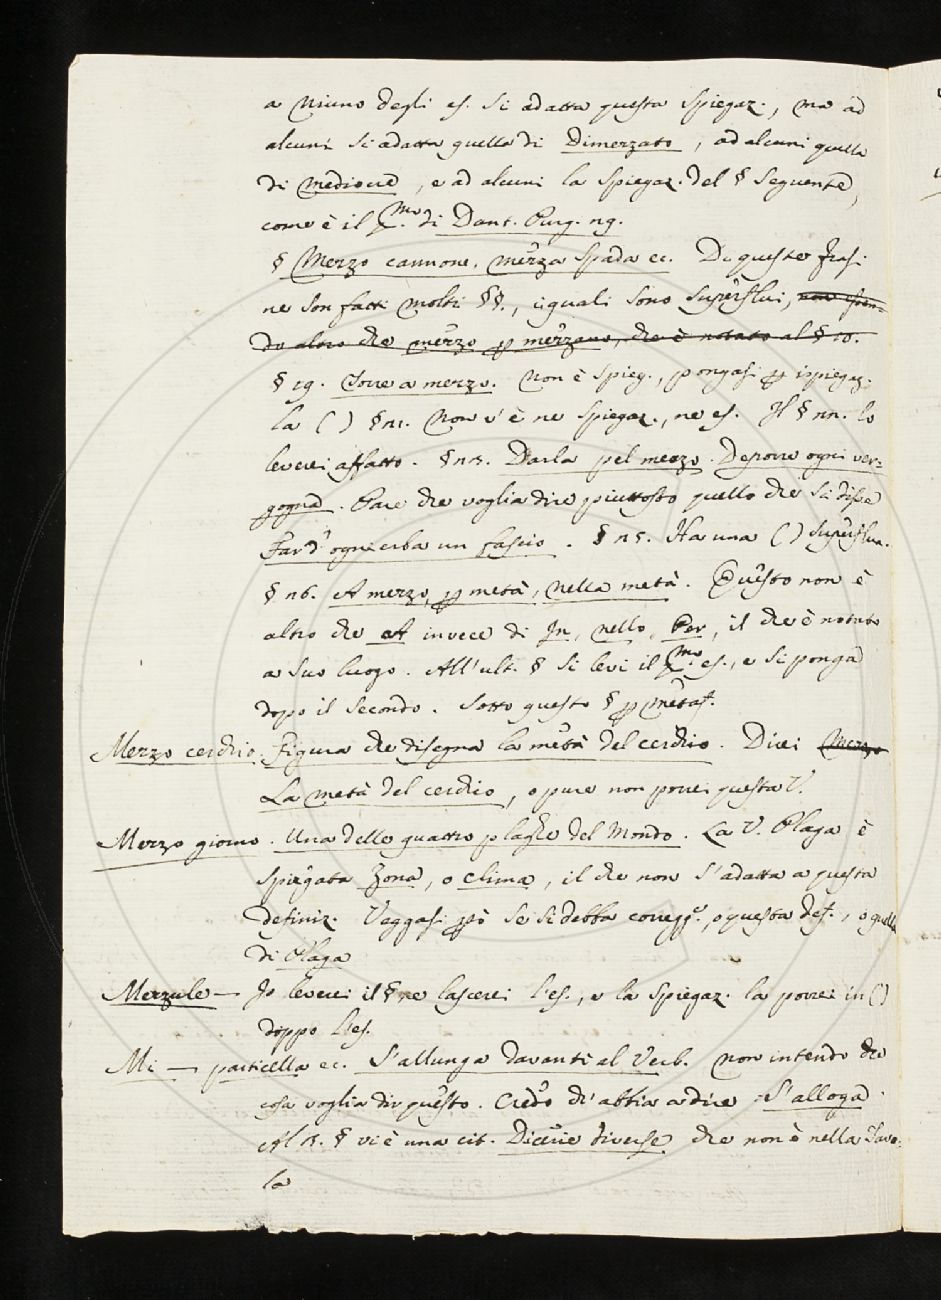 a niuno degli es. si adatta questa spiegaz., ma ad
alcuni si adatta quella di Dimezzato, ad alcuni quella
di mediocre, e ad alcuni la spiegaz. del § seguente,
come è il x.mo di Dant. Purg. 29.
§ Mezzo cannone, mezza spada ec. Di queste frasi
ne son fatti molti §§., i quali sono superflui, non essen-
do altro che mezzo p mezzano, che è notato al § 10.
§ 19. Torre a mezzo. Non è spieg., pongasi p ispiegaz.
la ( ) § 21. Non v'è ne spiegaz., ne es. Il § 22. lo
leverei affatto. § 23. Darla pel mezzo. Deporre ogni ver-
gogna. Pare che voglia dire piuttosto quello che si disse
Far d'ogni erba un fascio. § 25. Ha una ( ) superflua.
§ 26. A mezzo, p metà, nella metà. Questo non è
altro che A invece di In, nello, Per, il che è notato
a suo luogo. All'ult. § si levi il x.mo es., e si ponga
dopo il secondo. Sotto questo § p metaf.
Mezzo cerchio. Figura che disegna la metà del cerchio. Direi Mezzo
La metà del cerchio, o pure non porrei questa V.
Mezzo giorno. Una delle quattro plaghe del Mondo. La V. Plaga è
spiegata Zona, o clima, il che non s'adatta a questa
definiz. Veggasi pò se si debba correg., o questa def., o quella
di Plaga
Mezzule — Io leverei il § ne lascerei l'es., e la spiegaz. la porrei in ( )
doppo l'es.
Mi — particella ec. S'allunga davanti al Verb. non intendo che
cosa voglia dir questo. Credo ch'abbia a dire S'alloga.
Al 3. § vi è una cit. Dicerie diverse che non è nella Tavo-
la